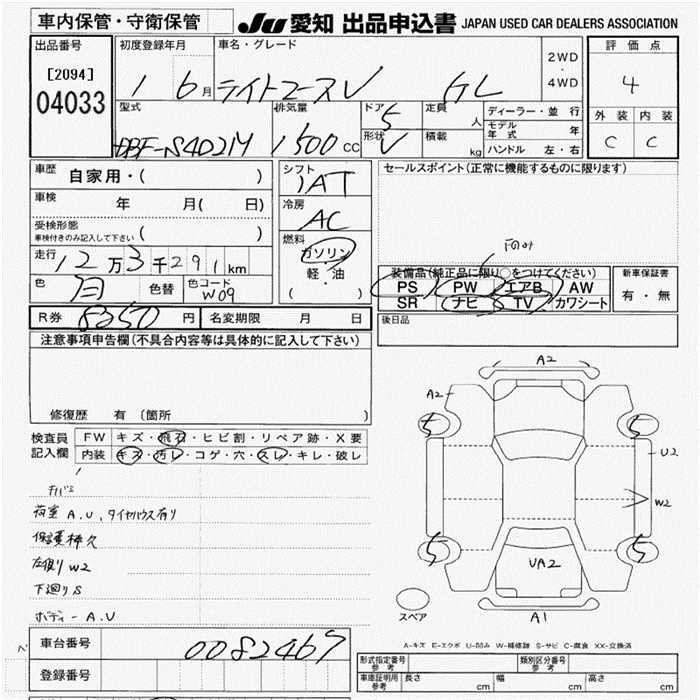 車内保管・守衛保管
JU 愛知 出品申込書 JAPAN USED CAR DEALERS ASSOCIATION
出品番号
[2094]
04033
初度登録年月
1 6月
車名・グレード
ライトエースV GL
2WD
・
4WD
評価点
4
外装 内装
C C
型式
DBF-S402M
排気量
1500 CC
ドア
5
形状
V
定員
人
積載
kg
ディーラー・並行
モデル年式 年
ハンドル 左・右
車歴
自家用・( )
車検
年 月( 日)
受検形態
車検付きのみ記入して下さい ( )
走行
12万3千291km
色
白
色替
色コード
W09
シフト
IAT
冷房
AC
燃料
ガソリン
軽・油
( )
セールスポイント(正常に機能するものに限ります)
装備品(純正品に限り○をつけてください)
PS PW エアB AW
SR ナビ TV カワシート
新車保証書
有・無
後日品
R券 8350円 名変期限 月 日
注意事項申告欄(不具合内容等は具体的に記入して下さい)
修復歴 有 (箇所 )
検査員
記入欄
FW キズ・飛石・ヒビ割・リペア跡・X要
内装 キズ・汚レ・コゲ・穴・スレ・キレ・破レ
荷室 A.U, タイヤハウス有り
左側り W2
下廻り S
ボディー A.U
A2
A2
5
5
U2
W2
5
5
UA2
A1
スペア
A-キズ E-エクボ U-凹み W-補修跡 S-サビ C-腐食 XX-交換済
車台番号
0082469
登録番号
形式指定番号
参考
類別区分番号
参考
車庫証明用
参考
長さ cm 幅 cm 高さ cm